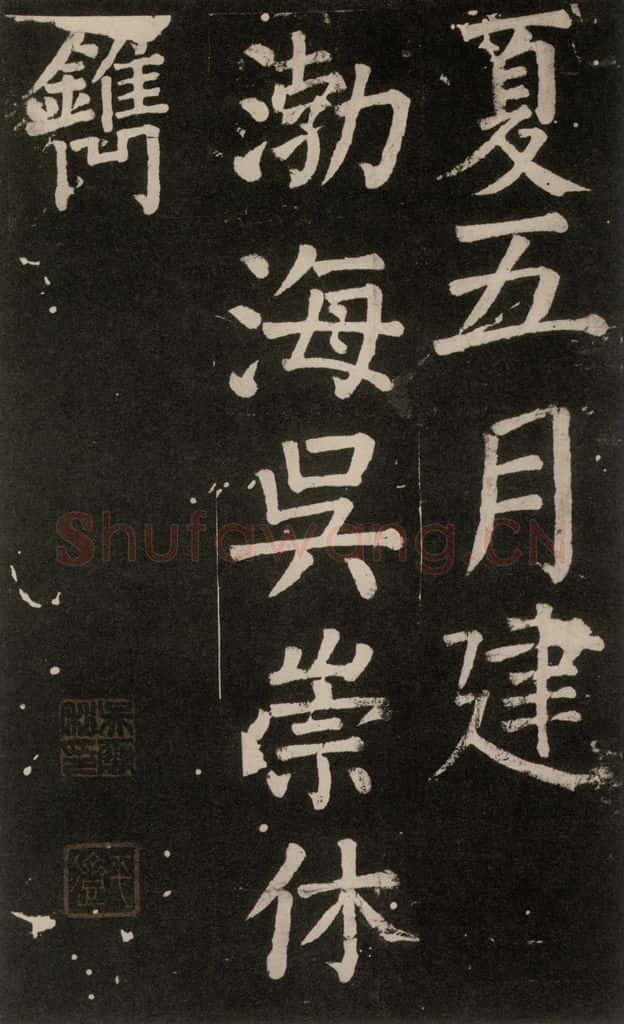 夏五月建
渤海吳崇休
鐫
Shufawang.CN